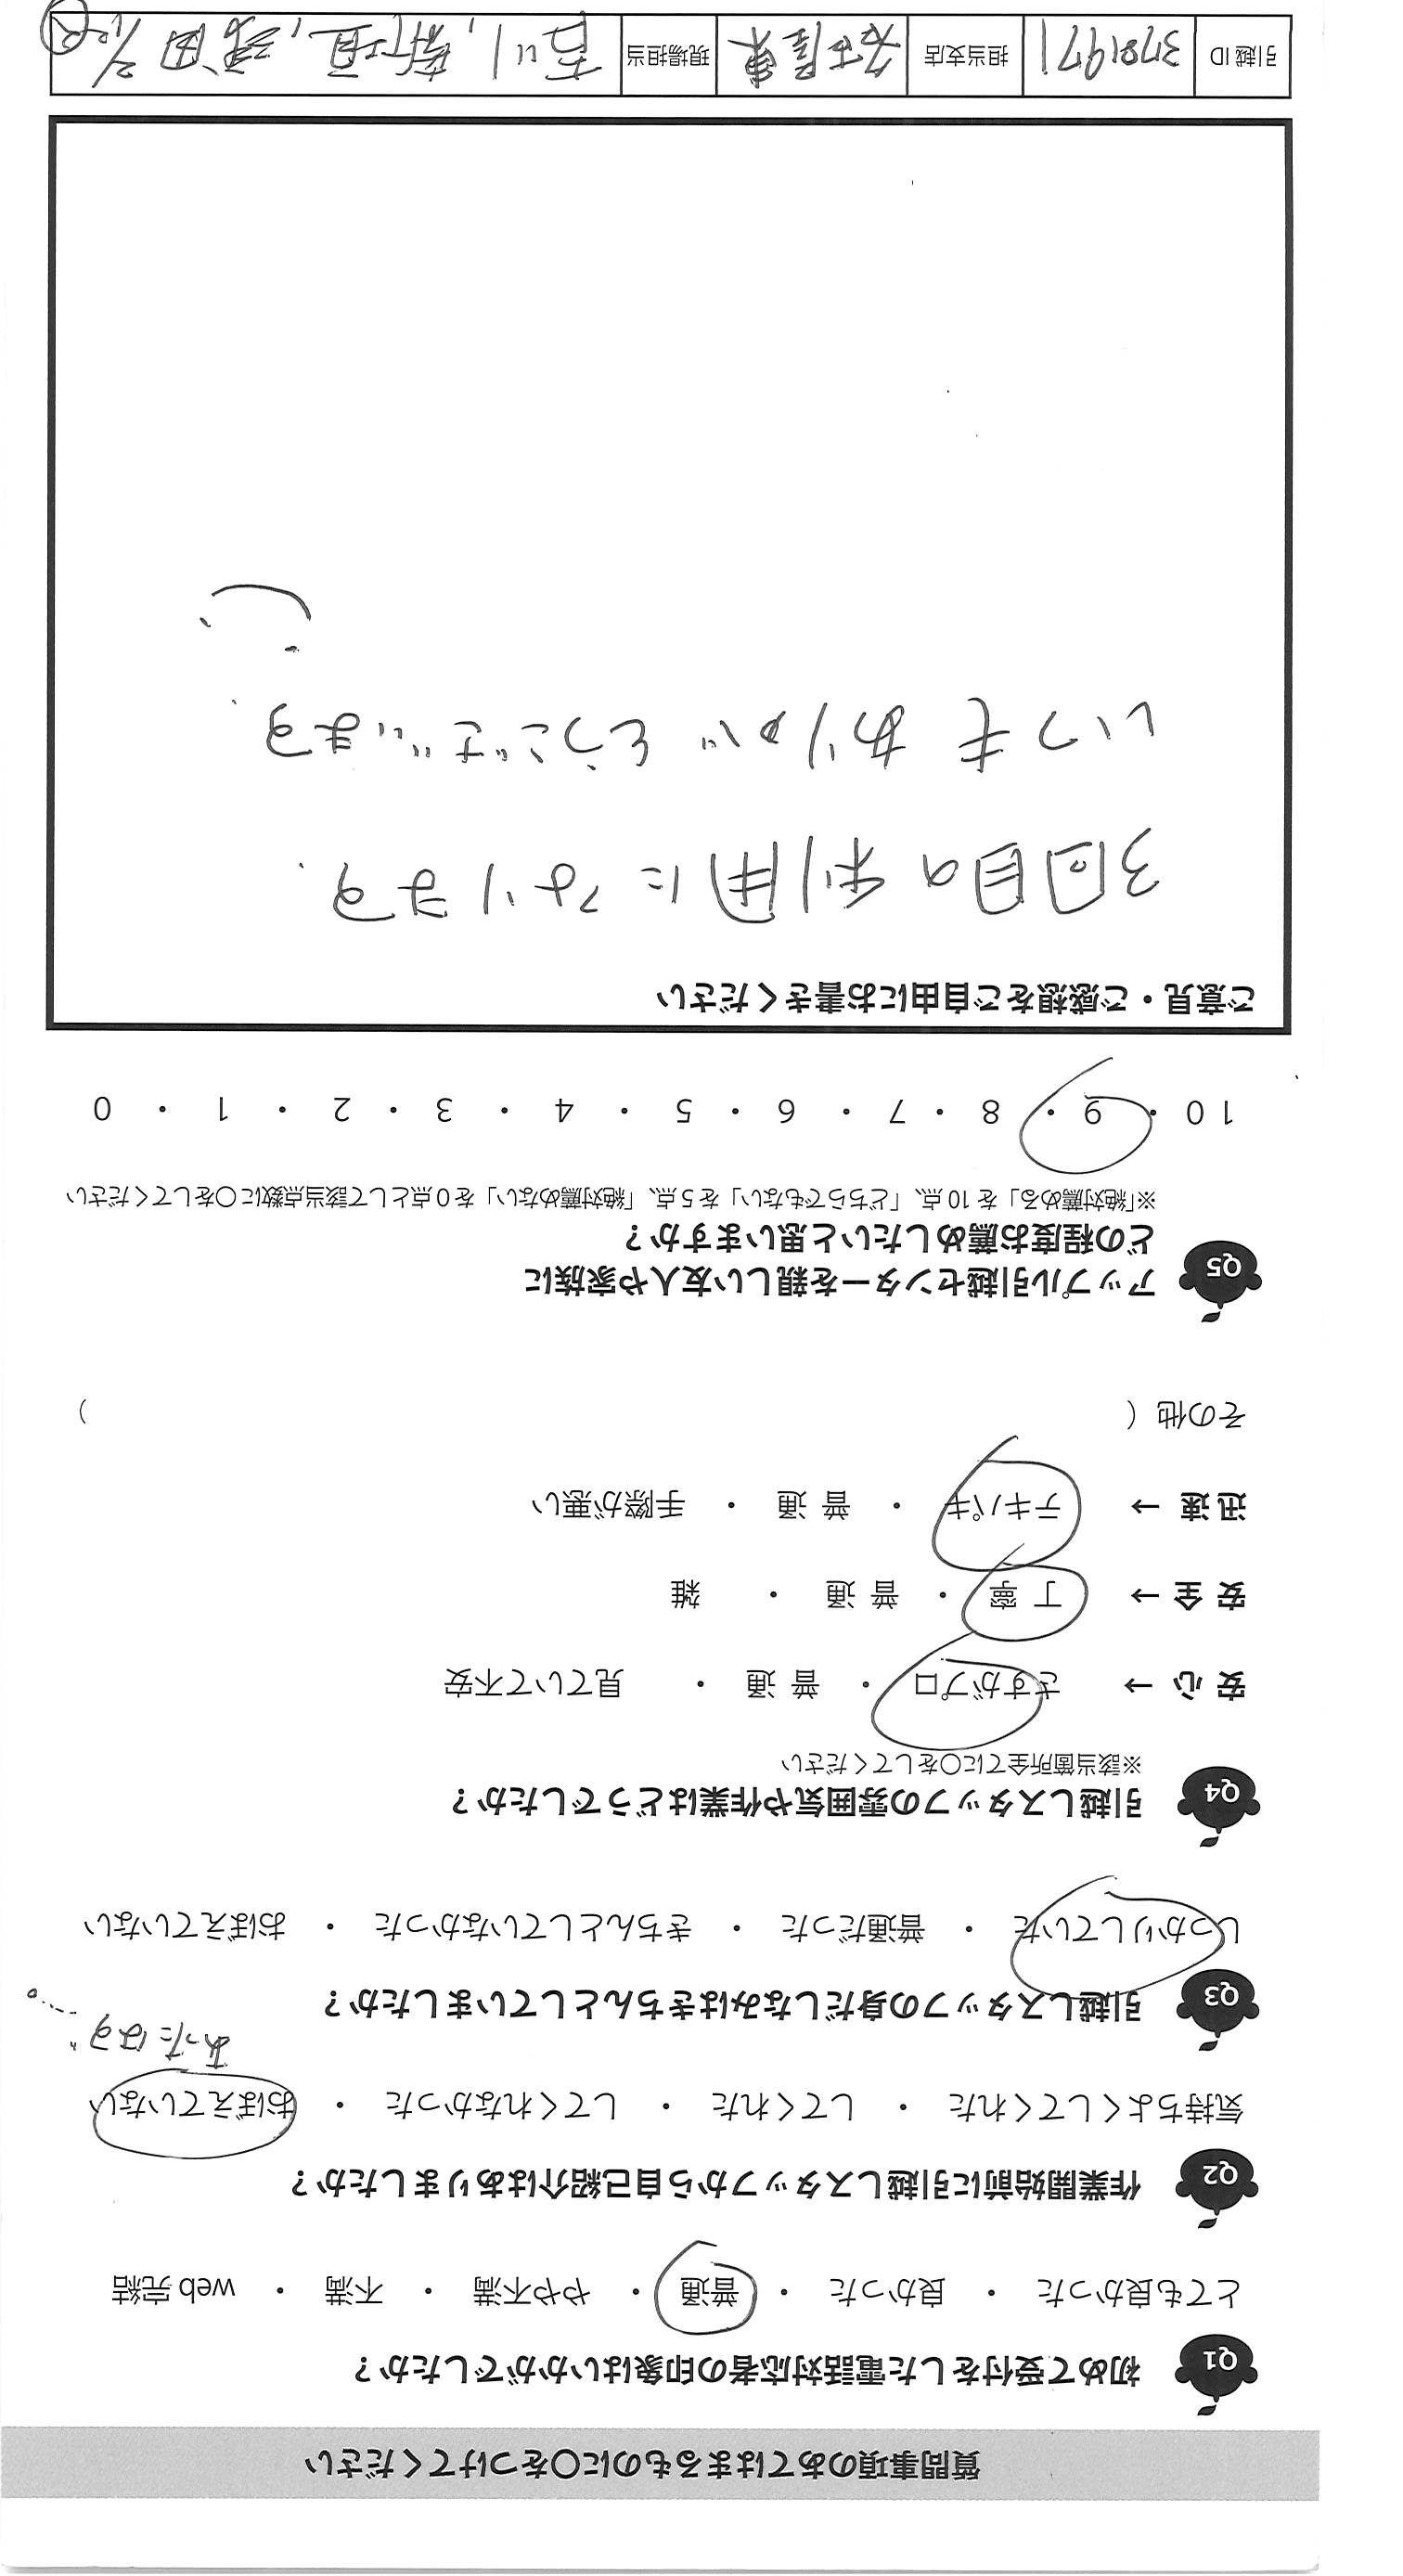 質問事項のあてはまるものに○をつけてください
Q1 初めて受付をした電話対応者の印象はいかがでしたか？
とても良かった ・ 良かった ・ 普通 ・ やや不満 ・ 不満 ・ web完結
Q2 作業開始前に引越しスタッフから自己紹介はありましたか？
気持ちよくしてくれた ・ してくれた ・ してくれなかった ・ おぼえていない
あったはず
Q3 引越しスタッフの身だしなみはきちんとしていましたか？
しっかりしていた ・ 普通だった ・ きちんとしていなかった ・ おぼえていない
Q4 引越しスタッフの雰囲気や作業はどうでしたか？
※該当箇所全てに○をしてください
安心 → さすがプロ ・ 普通 ・ 見ていて不安
安全 → 丁寧 ・ 普通 ・ 雑
迅速 → テキパキ ・ 普通 ・ 手際が悪い
その他（ ）
Q5 アップル引越センターを親しい友人や家族に
どの程度お薦めしたいと思いますか？
※「絶対薦める」を10点、「どちらでもない」を5点、「絶対薦めない」を0点として該当点数に○をしてください
10 ・ 9 ・ 8 ・ 7 ・ 6 ・ 5 ・ 4 ・ 3 ・ 2 ・ 1 ・ 0
ご意見・ご感想をご自由にお書きください
3回目の利用になります.
いつもありがとうございます.
引越ID 3781971 担当支店 名古屋東 現場担当 吉川, 新垣,